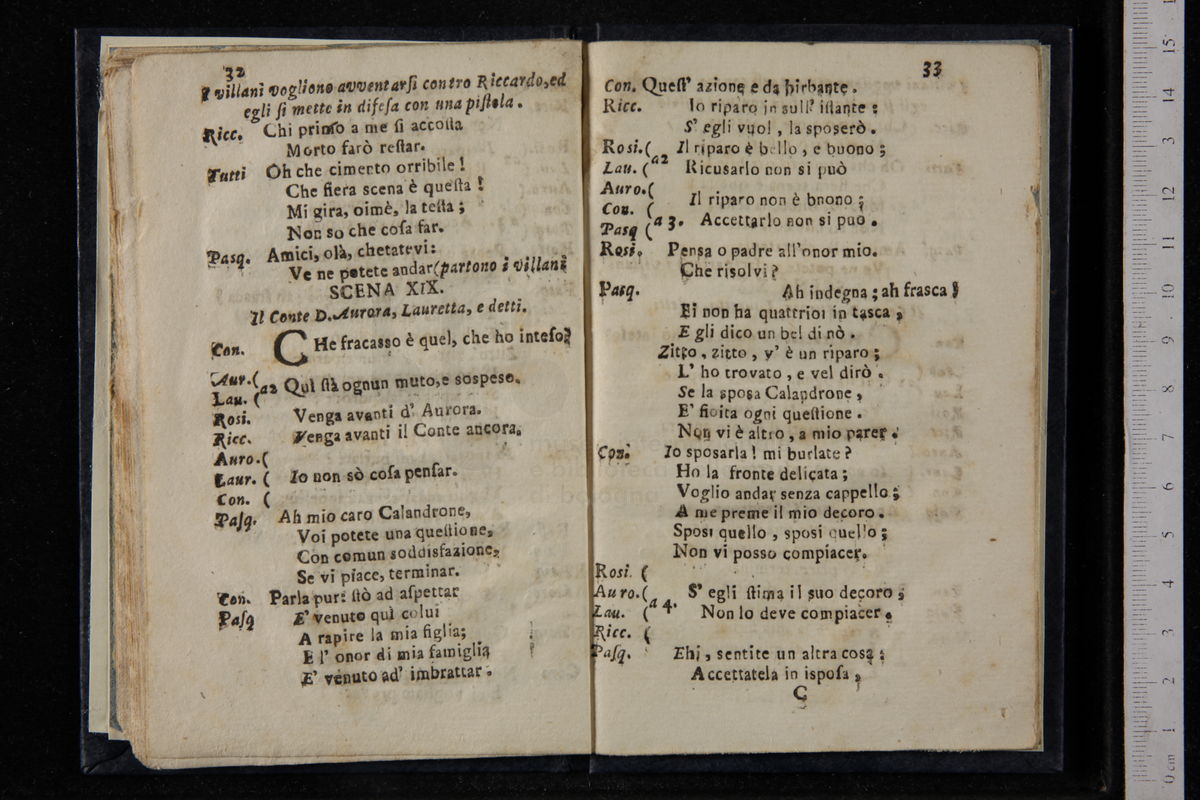 32
I villani vogliono avventarſi contro Riccardo, ed
egli ſi mette in difeſa con una piſtola.
Ricc. Chi primo a me ſi accoſta
Morto farò reſtar.
Tutti Oh che cimento orribile!
Che fiera scena è queſta!
Mi gira, oimè, la teſta;
Non so che coſa far.
Pasq. Amici, olà, chetatevi:
Ve ne potete andar (partono i villani
SCENA XIX.
Il Conte D. Aurora, Lauretta, e detti.
Con. CHe fracasso è quel, che ho inteſo?
Aur. (
a2 Quì ſtà ognun muto, e sospeso.
Lau. (
Rosi. Venga avanti d' Aurora.
Ricc. Venga avanti il Conte ancora.
Auro. (
Laur. ( Io non sò coſa penſar.
Con. (
Paſq. Ah mio caro Calandrone,
Voi potete una queſtione,
Con comun soddisfazione,
Se vi piace, terminar.
Con. Parla pur: ſtò ad aſpettar
Paſq E' venuto quì colui
A rapire la mia figlia;
E l' onor di mia famiglia
E' venuto ad' imbrattar.
33
Con. Queſt' azione e da birbante.
Ricc. Io riparo in sull' iſtante:
S' egli vuol, la sposerò.
Rosi. ( a2 Il riparo è bello, e buono;
Lau. ( Ricusarlo non si può
Auro. (
Il riparo non è bnono;
Con. (
a 3. Accettarlo non si può.
Pasq (
Rosi. Pensa o padre all'onor mio.
Che risolvi?
Pasq. Ah indegna; ah frasca!
Ei non ha quattrioi in tasca,
E gli dico un bel di nò.
Zitto, zitto, v' è un riparo;
L' ho trovato, e vel dirò.
Se la sposa Calandrone,
E' finita ogni queſtione.
Non vi è altro, a mio parer.
Con. Io sposarla! mi burlate?
Ho la fronte delicata;
Voglio andar senza cappello;
A me preme il mio decoro.
Sposi quello, sposi quello;
Non vi posso compiacer.
Rosi. (
Auro. ( S' egli ſtima il suo decoro,
Lau. ( a 4. Non lo deve compiacer.
Ricc. (
Paſq. Ehi, sentite un altra cosa:
Accettatela in ispoſa,
C